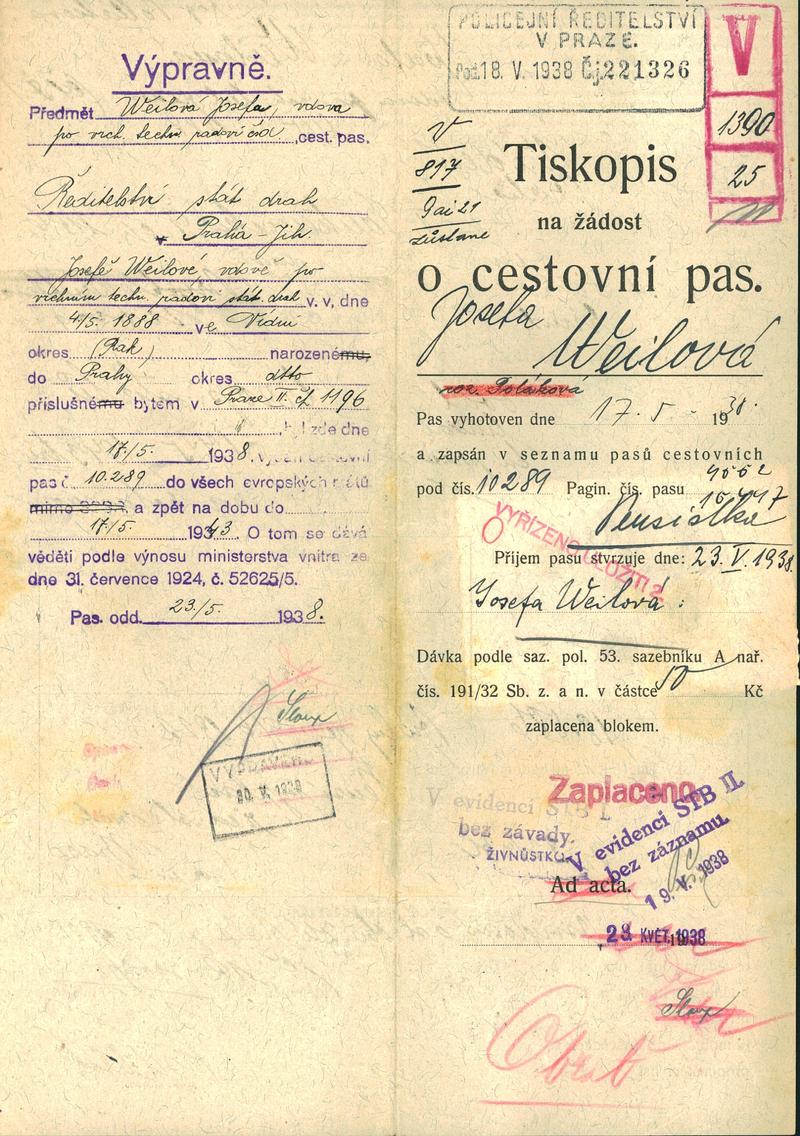 Výpravně.
Předmět Weilová Josefa, vdova
po vrch. techn. radovi čsd. cest. pas.
Ředitelství stát drah
v Praha-Jih.
Josefě Weilové, vdově po
vrchním techn. radovi stát. drah v. v., dne
4/5. 1888 ve Vídni
okres (Rak) narozenému,
do Prahy okres dtto
příslušnému bytem v Praze II. čp. 1196
, byl zde dne
17./5. 1938. vydán cestovní
pas č. 10.289 do všech evropských států
mimo SSSR, a zpět na dobu do
17./5. 1943. O tom se dává
věděti podle výnosu ministerstva vnitra ze
dne 31. července 1924, č. 52625/5.
Pas. odd. 23./5. 1938.
VYPRAVENO
20. V. 1938
POLICEJNÍ ŘEDITELSTVÍ
V PRAZE.
Pod. 18. V. 1938 Čj. 221326
V
1390
25
V
817
9 ai 21
zůstane
Tiskopis
na žádost
o cestovní pas.
Josefa
Weilová
roz. Poláková
Pas vyhotoven dne 17. 5. 1938.
a zapsán v seznamu pasů cestovních
pod čís. 10289 Pagin. čís. pasu
Pensistka
VYŘÍZENO ULOŽITI
Příjem pasu stvrzuje dne: 23. V. 1938.
Josefa Weilová.
Dávka podle saz. pol. 53. sazebníku A nař.
čís. 191/32 Sb. z. a n. v částce 50 Kč
zaplacena blokem.
Zaplaceno
V evidenci STB I.
bez závady.
ŽIVNŮSTKA
V evidenci STB II.
bez záznamu.
19. V. 1938
Ad acta.
23. KVĚT. 1938